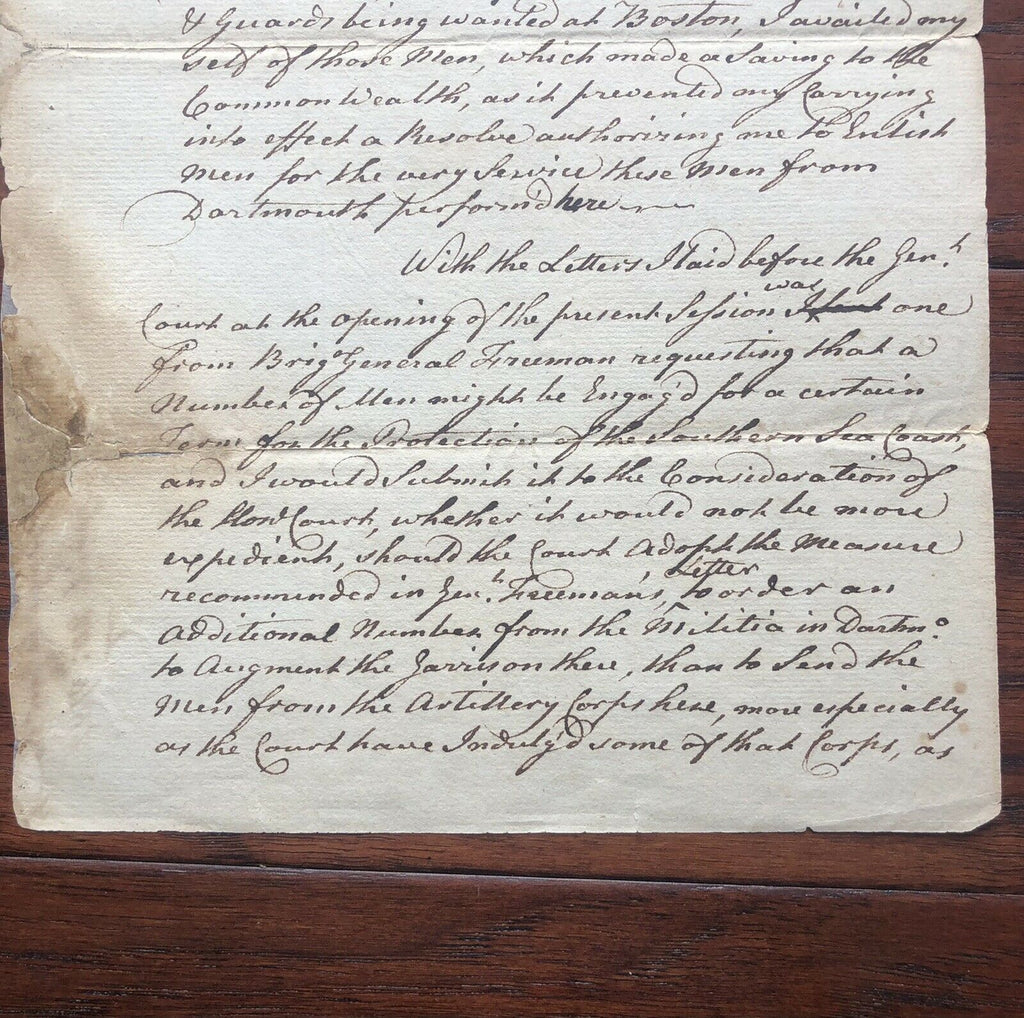 & Guards being wanted at Boston, I availed my
self of those Men, which made a Saving to the
CommonWealth, as it prevented my Carrying
into effect a Resolve authorizing me to Enlist
Men for the very Service these Men from
Dartmouth perform'd here
With the Letters I laid before the Genl.
Court at the opening of the present Session was one
from Brigo General Freeman requesting that a
Number of Men might be Engag'd for a certain
Term for the Protection of the Southern Sea Coast,
and I would Submit it to the Consideration of
the Honl Court, whether it would not be more
expedient, should the Court Adopt the Measure
recommended in Genl. Freeman's, Letter to order an
Additional Number from the Militia in Dartmo.
to Augment the Garrison there, than to Send the
Men from the Artillery Corps here, more especially
as the Court have Indulg'd some of that Corps, as